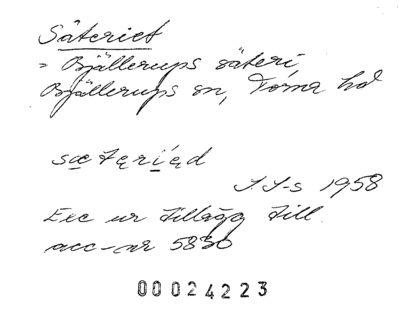 Säteriet
= Bjällerups säteri,
Bjällerups sn, Torna hd
sætęrięd
S S-s 1958
Exc ur tillägg till
acc-nr 5830
00024223